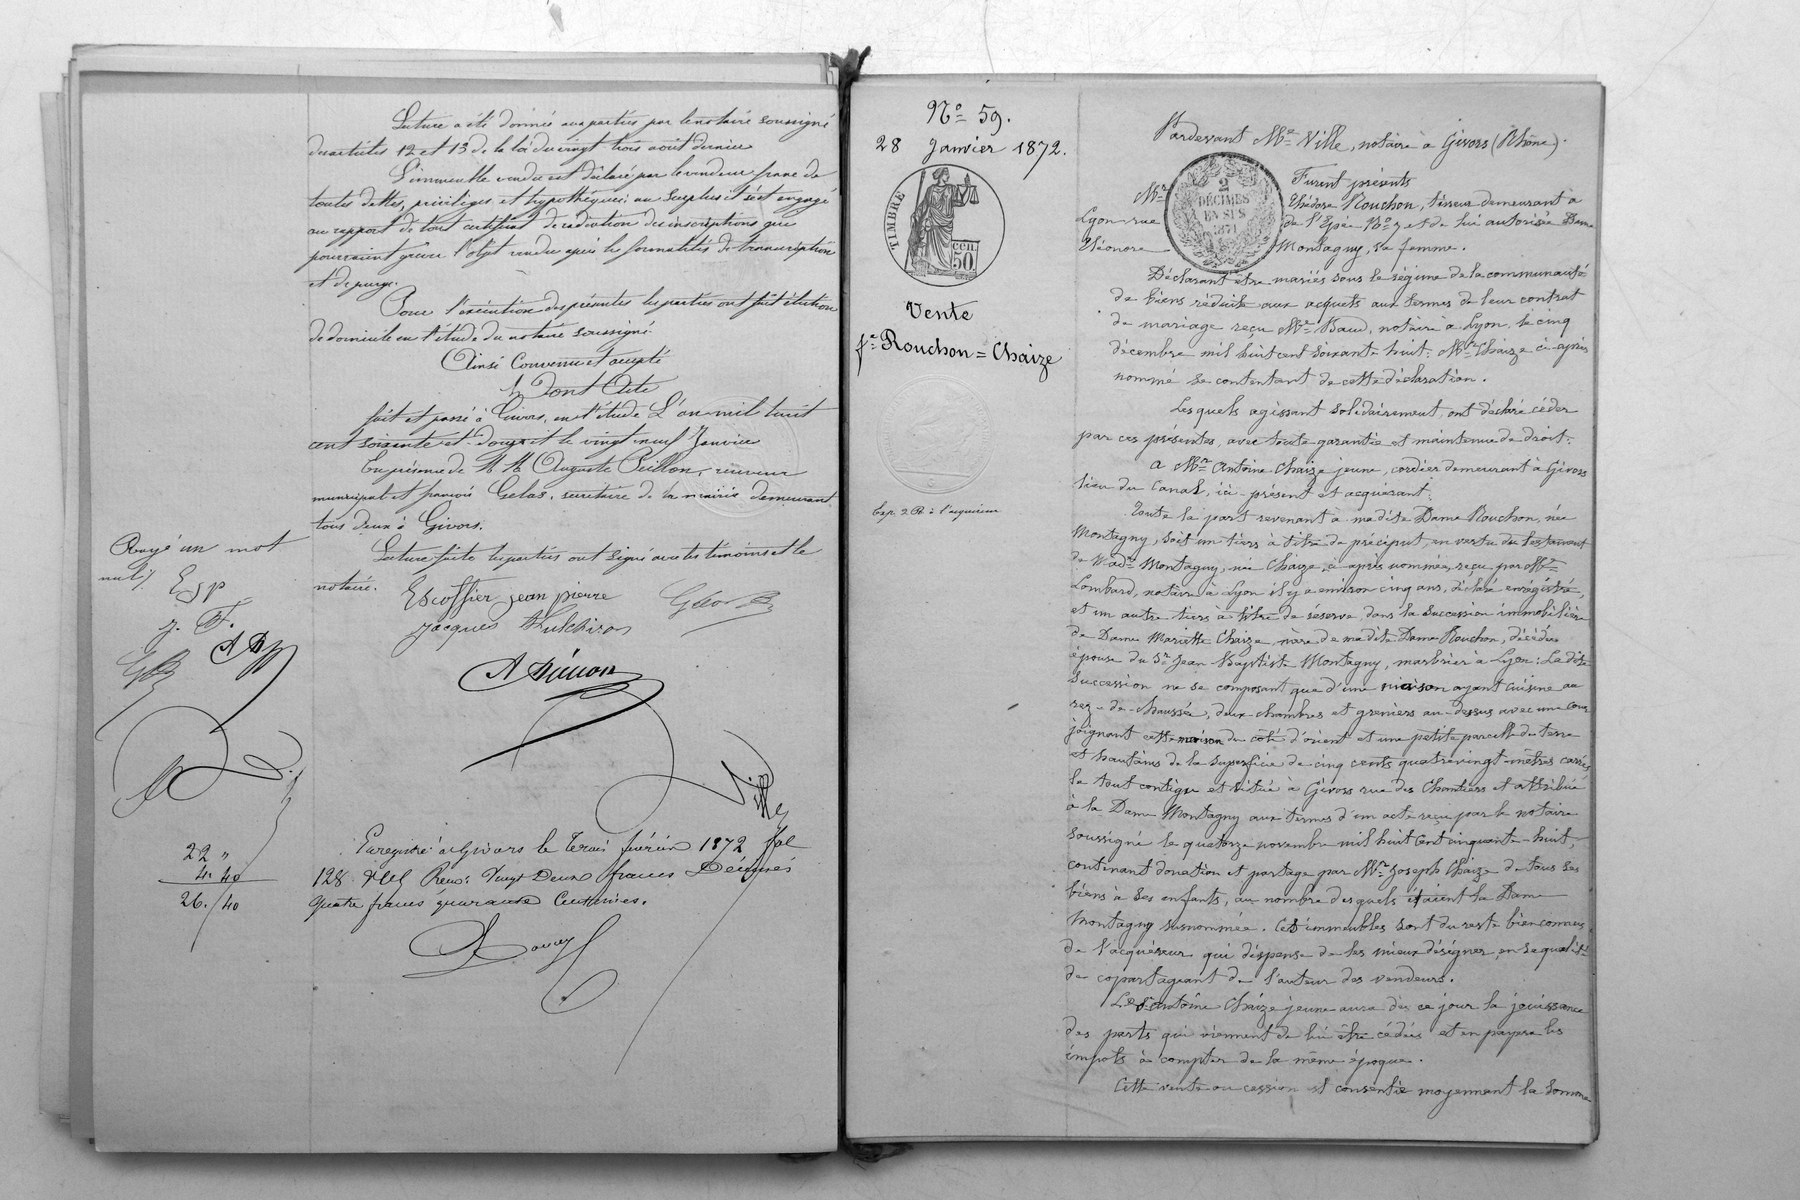 Lecture a été donnée aux parties par le notaire soussigné
des articles 12 et 13 de la loi du vingt trois août dernier
L'immeuble vendu est déclaré par le vendeur franc de
toutes dettes, privilèges et hypothèques; au surplus il s'est engagé
au rapport de tout certificat de radiation des inscriptions qui
pourraient grever l'objet vendu après les formalités de transcription
et de purge.
Pour l'exécution des présentes les parties ont fait élection
de domicile en l'étude du notaire soussigné.
Ainsi Convenu et accepté
Dont Acte
fait et passé à Givors, en l'étude L'an mil huit
cent soixante et douze et le vingt neuf Janvier
En présence de M M Auguste receveur
municipal et françois Gelas, secrétaire de la mairie demeurant
tous deux à Givors.
Lecture faite les parties ont signé avec les témoins et le
notaire.
Escoffier jean pierre
jacques
Ville
Rayé un mot
nul
E J p
22 "
4. 40
26. 40
Enregistré à Givors le Trois février 1872 fol
128 Reçu: Vingt Deux francs Décimes
quatre francs quarante Centimes.
No 59.
28 Janvier 1872.
TIMBRE
cen.
50
Vente
Rouchon = Chaize
Exp. 2 R à l'acquéreur
Pardevant Me Ville, notaire à Givors (Rhône).
2
DÉCIMES
EN SUS
1871
Furent présents
Mr Théodore Rouchon, tisseur demeurant à
Lyon rue de l'Epée No 7 et de lui autorisée Dame
Eléonore Montagny, sa femme.
Déclarant être mariés sous le régime de la communauté
de biens réduite aux acquets aux termes de leur contrat
de mariage reçu Me Baud, notaire à Lyon, le cinq
décembre mil huit cent soixante huit. Mr Chaize ci-après
nommé se contentant de cette déclaration.
Lesquels agissant solidairement, ont déclaré céder
par ces présentes, avec toute garantie et maintenue de droit.
à Mr Antoine Chaize jeune, cordier demeurant à Givors
lieu du Canal, ici présent et acquérant.
Toute la part revenant à ma dite Dame Rouchon, née
Montagny, soit un tiers à titre de préciput, en vertu du testament
de Made Montagny, née Chaize, ci après nommée, reçu par Me
Lombard, notaire à Lyon il y a environ cinq ans, déclaré enregistré,
et un autre tiers à titre de réserve dans la succession immobilière
de Dame Mariette Chaize, mère de ma dite Dame Rouchon, décédée
épouse du Sr Jean Baptiste Montagny, marbrier à Lyon: La dite
succession ne se composant que d'une maison ayant cuisine au
rez-de-chaussée, deux chambres et greniers au-dessus avec une cour
joignant cette maison du coté d'orient et une petite parcelle de terre
et hautains de la superficie de cinq cents quatrevingt mètres carrés
le tout contigu et situé à Givors rue des Chantiers et attribué
à la Dame Montagny aux termes d'un acte reçu par le notaire
soussigné le quatorze novembre mil huit cent cinquante huit,
contenant donation et partage par Mr Joseph Chaize de tous ses
biens à ses enfants, au nombre desquels étaient la Dame
Montagny susnommée. Ces immeubles sont du reste bien connus
de l'acquéreur qui dispense de les mieux désigner, en sa qualité
de copartageant de l'auteur des vendeurs.
Le Sr Antoine Chaize jeune aura dès ce jour la jouissance
des parts qui viennent de lui être cédées et en payera les
impots à compter de la même époque.
Cette vente ou cession est consentie moyennant la somme